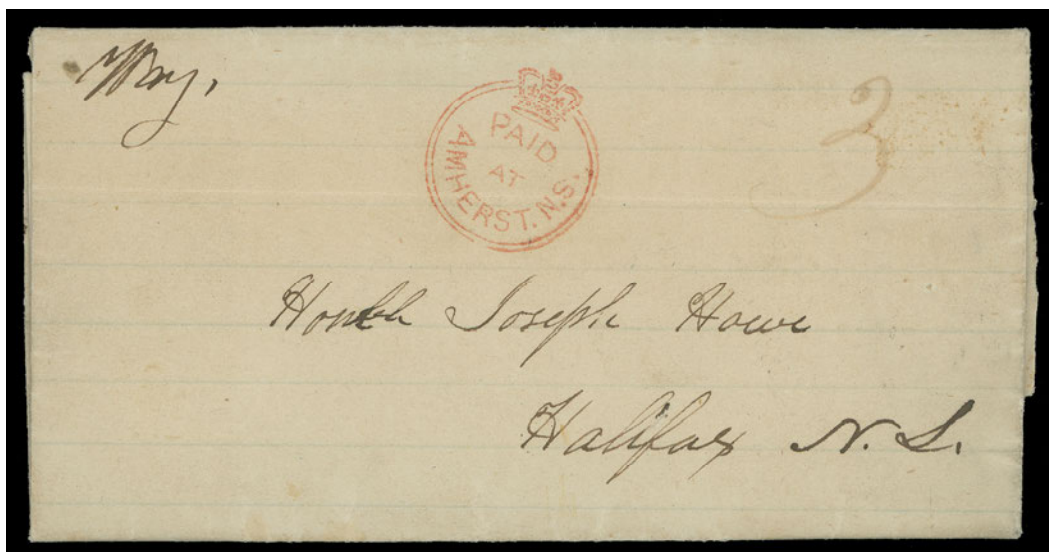 Way,
PAID
AT
AMHERST. N.S.
3
Honble Joseph Howe
Halifax N.S.